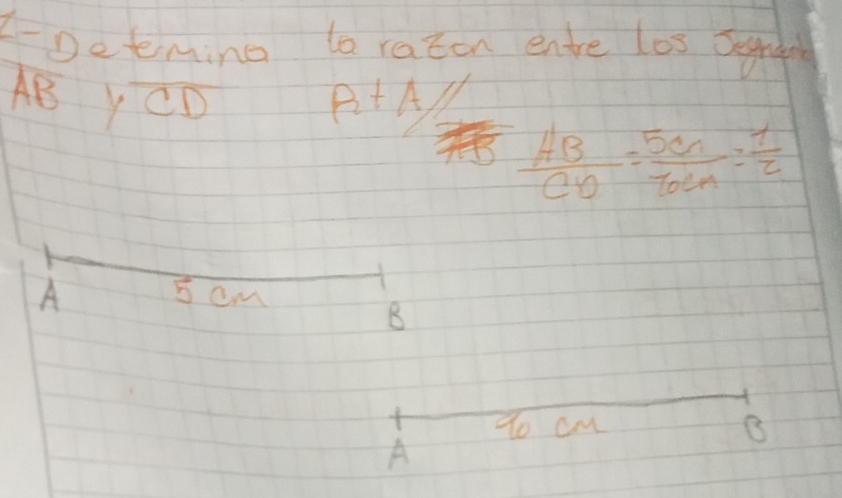 1-Determina la razon entre los Segment
AB y CD R+A//
AB/CD = 5cm/10cm = 1/2
A 5 cm B
A 10 cm B